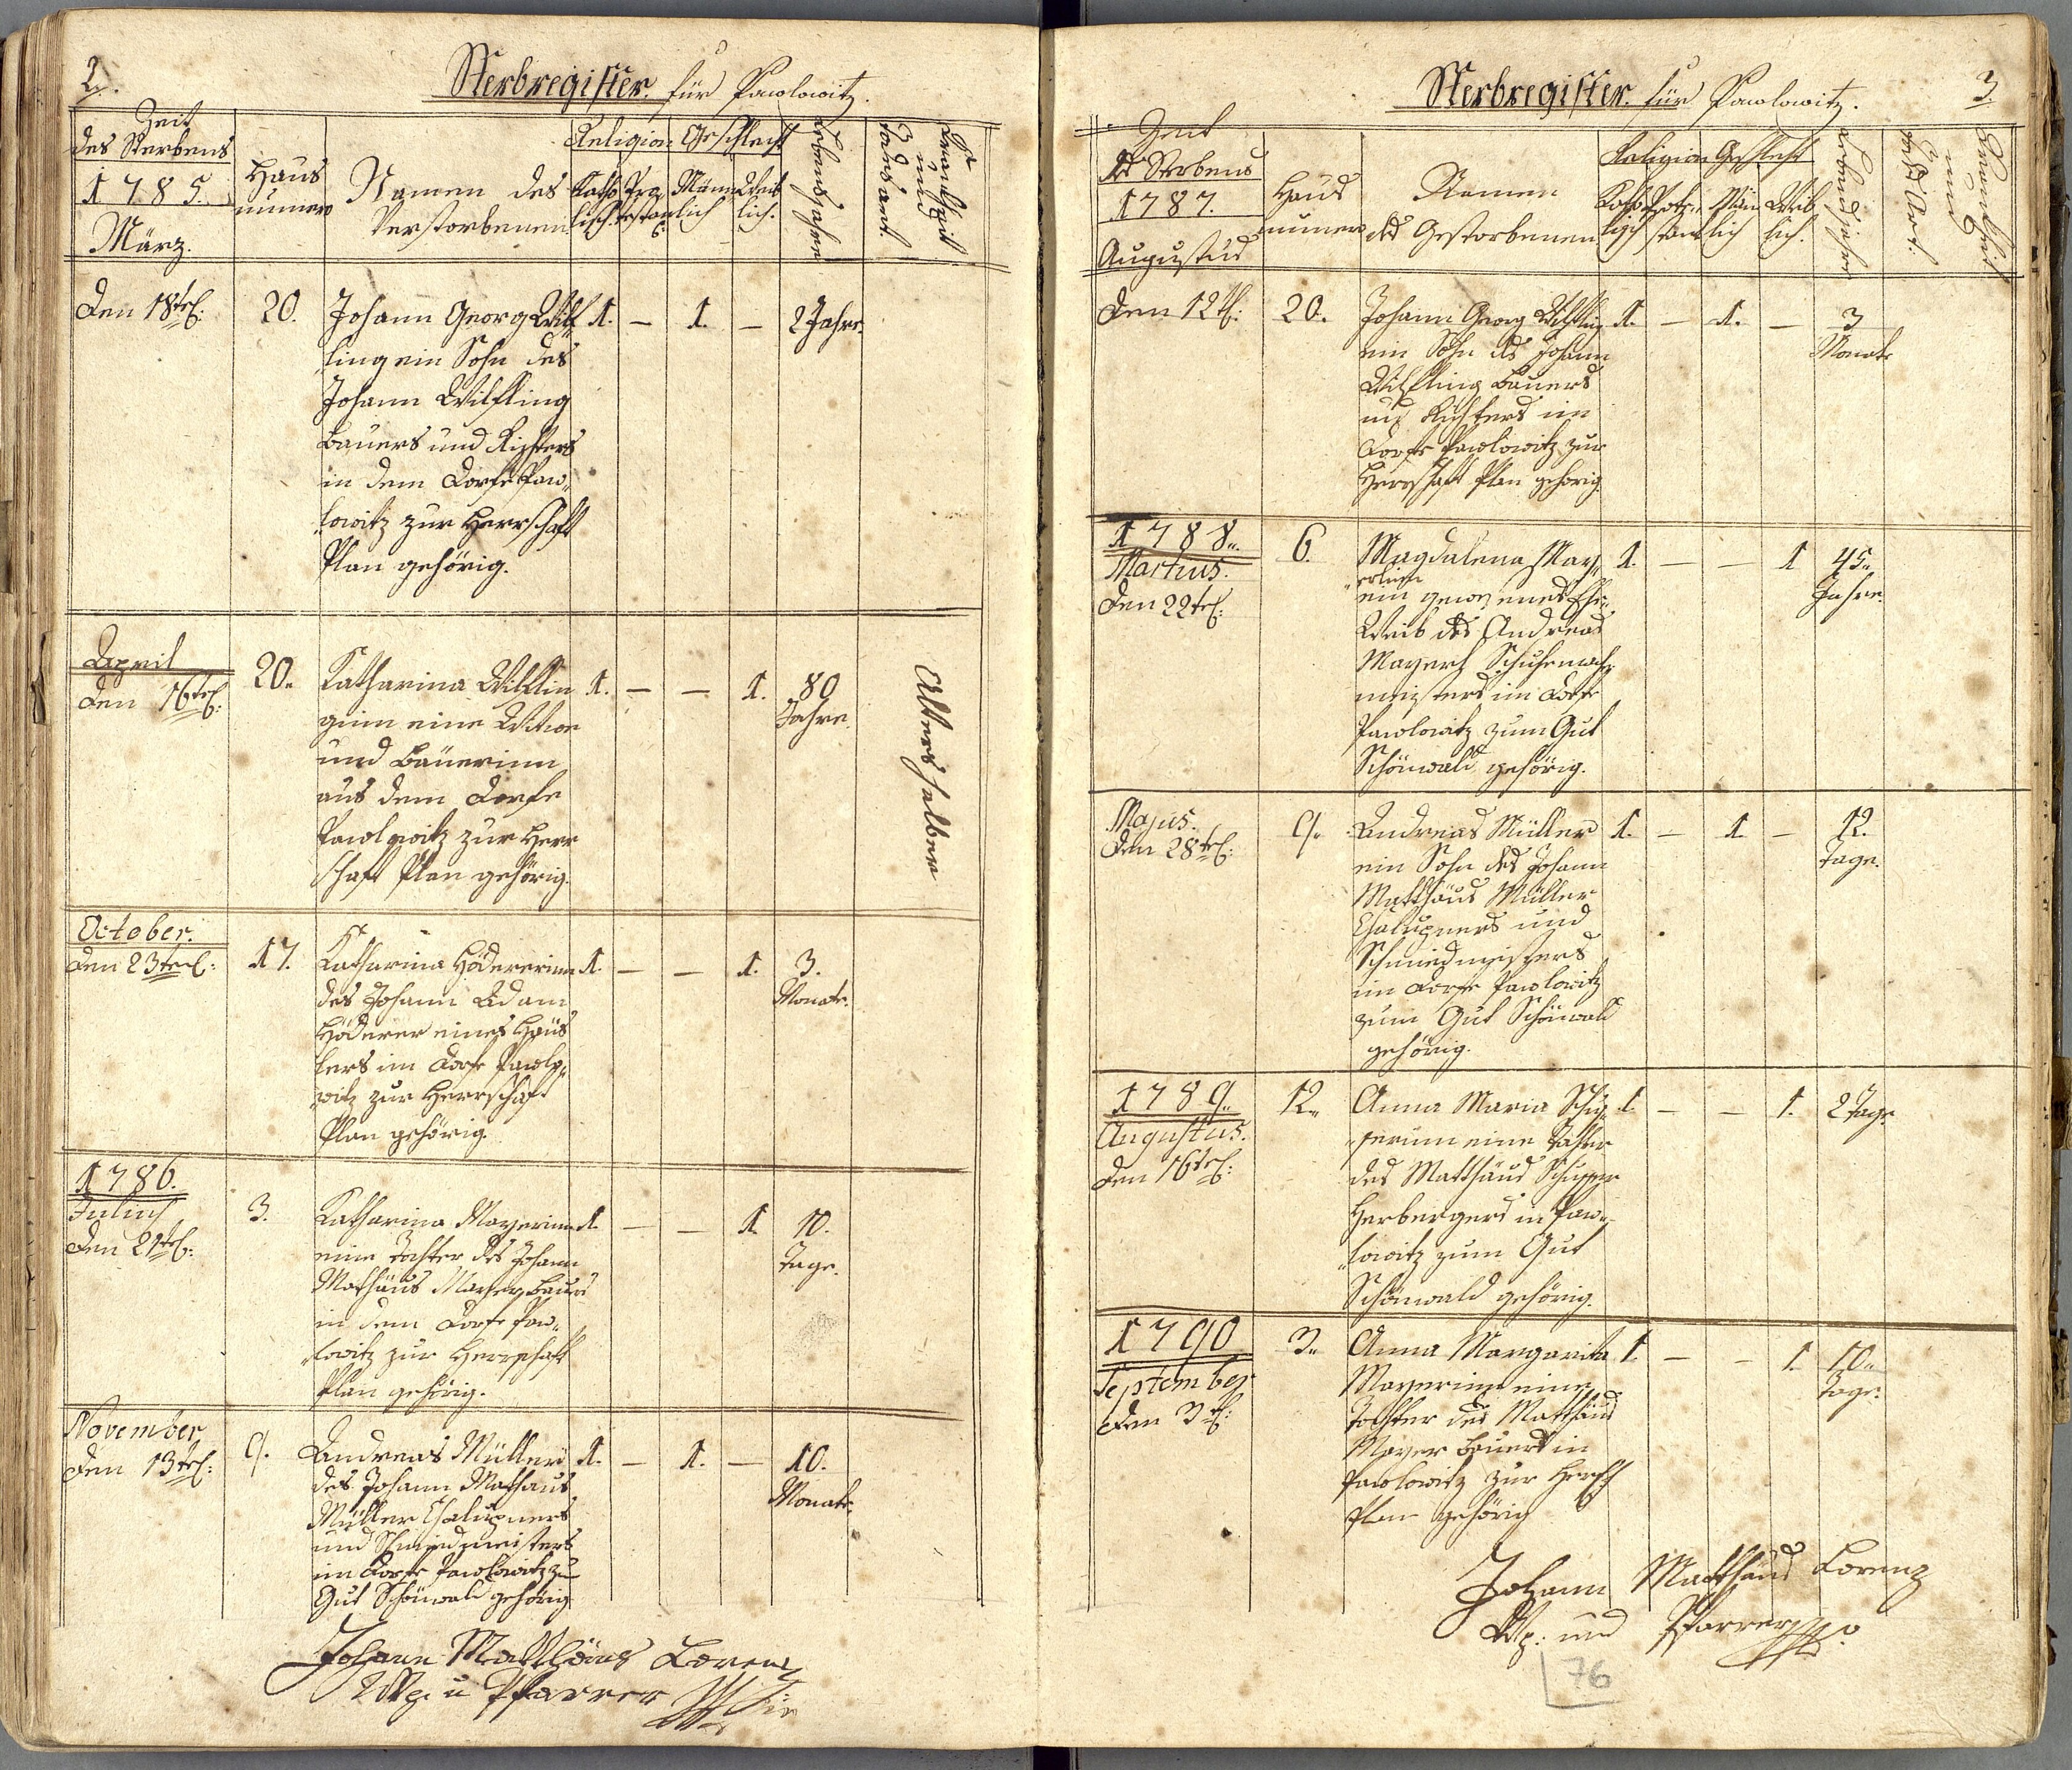 2.
Sterbregister für Pawlowitz.
Zeit
des Sterbens
1785.
März.
Haus
numero
Namen des
Verstorbenen
Religion
Katho
lisch.
Prot
estan
Geschlecht
Männ
lich
Weib
lich.
Lebensjahre
Krankheit
und
Todesart.
Den 18tes:
20.
Johann Georg Wilf
ling ein Sohn des
Johann Wilfling
Bauers und Richters
in dem Dorfe Paw„
„lowitz zur Herrschaft
Plan gehörig.
1. — 1. — 2 Jahre.
April
den 16tes:
20.
Katharina Wilflin
ginn eine Witwe
und Bäuerinn
aus dem Dorfe
Pawlowitz zur Herr
schaft Plan gehörig.
1. — — 1. 80
Jahre.
Alters halber
October.
den 23tes:
17.
Katharina Höderinn
des Johann Adam
Höderer eines Häus
lers im Dorfe Pawlo„
„witz zur Herrschaft
Plan gehörig.
1. — — 1. 3.
Monate.
1786.
Julius
den 21tes:
3.
Katharina Mayerinn
eine Tochter des Johann
Mathäus Mayer Bauers
in dem Dorfe Paw„
„lowitz zur Herrschaft
Plan gehörig.
1. — — 1. 10.
Tage.
November
den 13tes:
9.
Andreas Müller
des Johann Mathäus
Müller Chalupners
und Schmiedmeisters
im Dorfe Pawlowitz zu
Gut Schönwald gehörig
1. — 1. — 10.
Monate.
Johann Matthäus Lorenz
Wp. u Pfarrer
Sterbregister für Pawlowitz.
3.
Zeit
des Sterbens
1787.
Augustus
Haus
numero
Namen
des Gestorbenen
Religion
Katho
lisch
Prote„
stan
Geschlecht
Män
lich
Weib
lich.
Lebensjahre
Krankheit
und
Tods Art.
Den 12t:
20.
Johann Georg Wilfling
ein Sohn des Johann
Wilfling Bauers
und Richters im
Dorfe Pawlowitz zur
Herrschaft Plan gehörig.
1. — 1. — 3
Monate
1788„
Martius.
den 22tes:
6.
Magdalena May„
„erlinn
ein gewesenes Ehe„
Weib des Andreas
Mayerl Schuhmach
meisters im Dorfe
Pawlowitz zum Gut
Schönwald gehörig.
1. — — 1 45„
Jahre.
Majus.
den 28tes:
9.
Andreas Müller
ein Sohn des Johann
Matthäus Müller
Chalupners und
Schmiedmeisters
im Dorfe Pawlowitz
zum Gut Schönwald
gehörig.
1. — 1 — 12.
Tage.
1789„
Augustus.
den 16tes:
12„
Anna Maria Schu„
„serinn eine Tochter
des Matthäus Schusser
Herbergers in Paw„
„lowitz zum Gut
Schönwald gehörig.
1. — — 1. 2 Tage.
1790
September
den 3tes:
3„
Anna Margarita
Mayerinn eine
Tochter des Matthäus
Mayer Bauers in
Pawlowitz zur Hersch
Plan gehörig
1. — — 1. 10„
Tage.
Johann Matthäus Lorenz
Wp: und Pfarrer
76